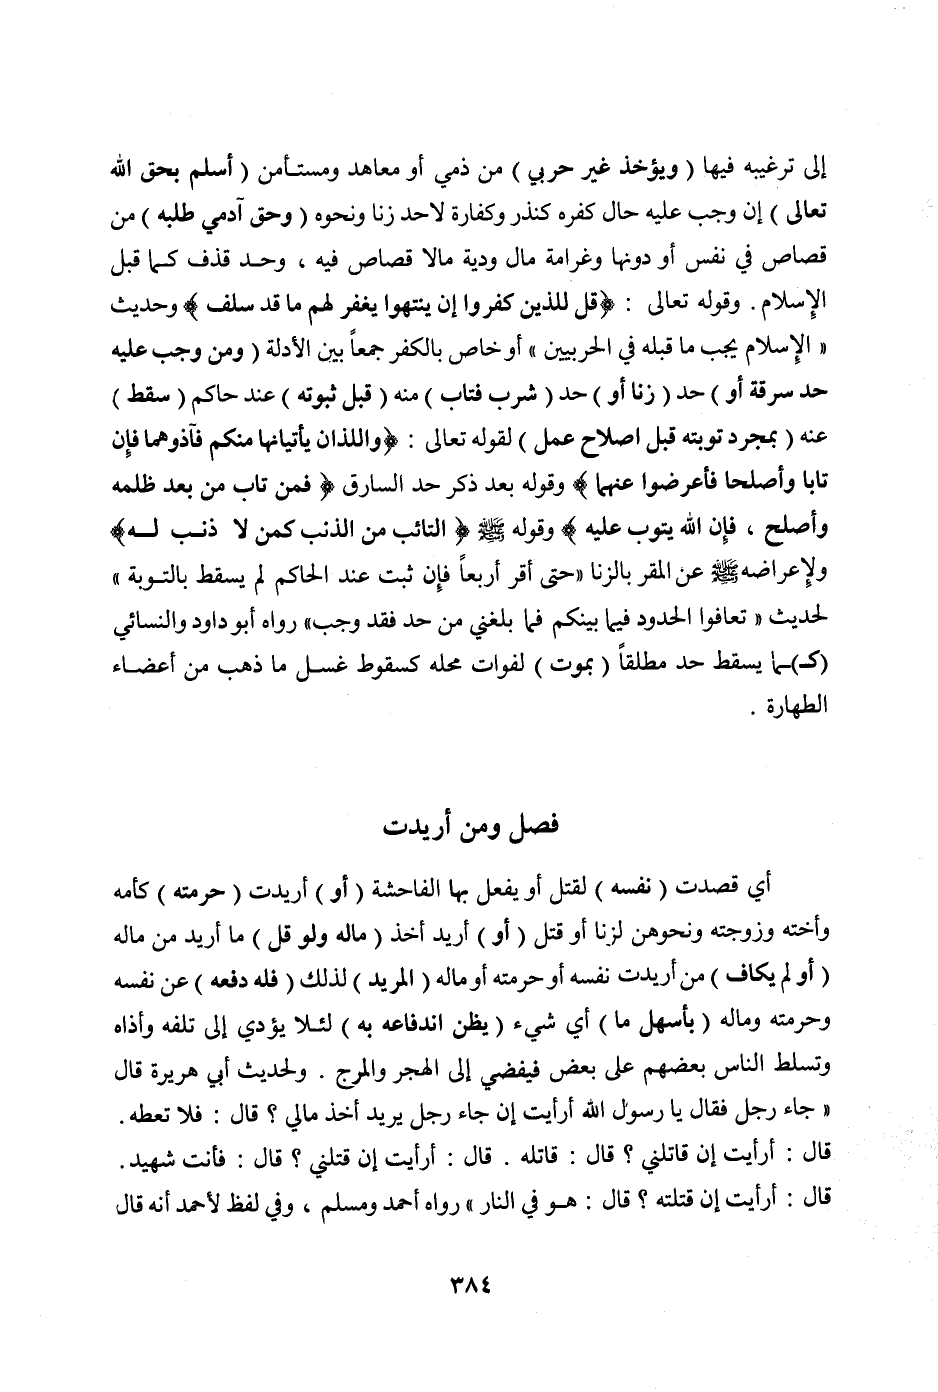 إلى ترغيبه فيها ( ويؤخذ غير حربي ) من ذمي أو معاهد ومستأمن ( أسلم بحق الله
تعالى ) إن وجب عليه حال كفره كنذر وكفارة لاحد زنا ونحوه ( وحق آدمي طلبه ) من
قصاص في نفس أو دونها وغرامة مال ودية مالا قصاص فيه ، وحد قذف كما قبل
الإسلام . وقوله تعالى : ﴿قل للذين كفروا إن ينتهوا يغفر لهم ما قد سلف ﴾ وحديث
« الإسلام يجب ما قبله في الحربيين » أو خاص بالكفر جمعاً بين الأدلة ( ومن وجب عليه
حد سرقة أو ) حد ( زنا أو ) حد ( شرب فتاب ) منه ( قبل ثبوته ) عند حاكم ( سقط )
عنه ( بمجرد توبته قبل اصلاح عمل ) لقوله تعالى : ﴿واللذان يأتيانها منكم فآذوهما فإن
تابا وأصلحا فأعرضوا عنهما ﴾ وقوله بعد ذكر حد السارق ﴿ فمن تاب من بعد ظلمه
وأصلح ، فإن الله يتوب عليه ﴾ وقوله ﷺ ﴿ التائب من الذنب كمن لا ذنب له﴾
ولإعراضه ﷺ عن المقر بالزنا «حتى أقر أربعاً فإن ثبت عند الحاكم لم يسقط بالتوبة »
لحديث « تعافوا الحدود فيما بينكم فما بلغني من حد فقد وجب» رواه أبو داود والنسائي
(كـ)ـما يسقط حد مطلقاً ( بموت ) لفوات محله كسقوط غسل ما ذهب من أعضاء
الطهارة .
فصل ومن أريدت
أي قصدت ( نفسه ) لقتل أو يفعل بها الفاحشة ( أو ) أريدت ( حرمته ) كأمه
وأخته وزوجته ونحوهن لزنا أو قتل ( أو ) أريد أخذ ( ماله ولو قل ) ما أريد من ماله
( أو لم يكاف ) من أريدت نفسه أو حرمته أو ماله ( المريد ) لذلك ( فله دفعه ) عن نفسه
وحرمته وماله ( بأسهل ما ) أي شيء ( يظن اندفاعه به ) لئلا يؤدي إلى تلفه وأذاه
وتسلط الناس بعضهم على بعض فيفضي إلى الهجر والمرج . ولحديث أبي هريرة قال
« جاء رجل فقال يا رسول الله أرأيت إن جاء رجل يريد أخذ مالي ؟ قال : فلا تعطه .
قال : أرأيت إن قاتلني ؟ قال : قاتله . قال : أرأيت إن قتلني ؟ قال : فأنت شهيد .
قال : أرأيت إن قتلته ؟ قال : هو في النار » رواه أحمد ومسلم ، وفي لفظ لأحمد أنه قال
٣٨٤